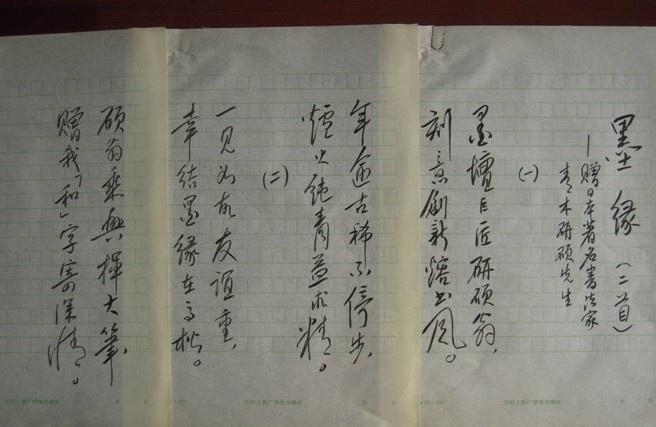 墨缘（二首）
—赠日本著名书法家
青木研硕先生
（一）
墨壇巨匠研硕翁，
刻意創新熔书风。
年逾古稀不停步，
爐火纯青益求精。
（二）
一见如故友谊重，
幸结墨缘在高松。
硕翁乘興揮大筆，
赠我「和」字寄深情。